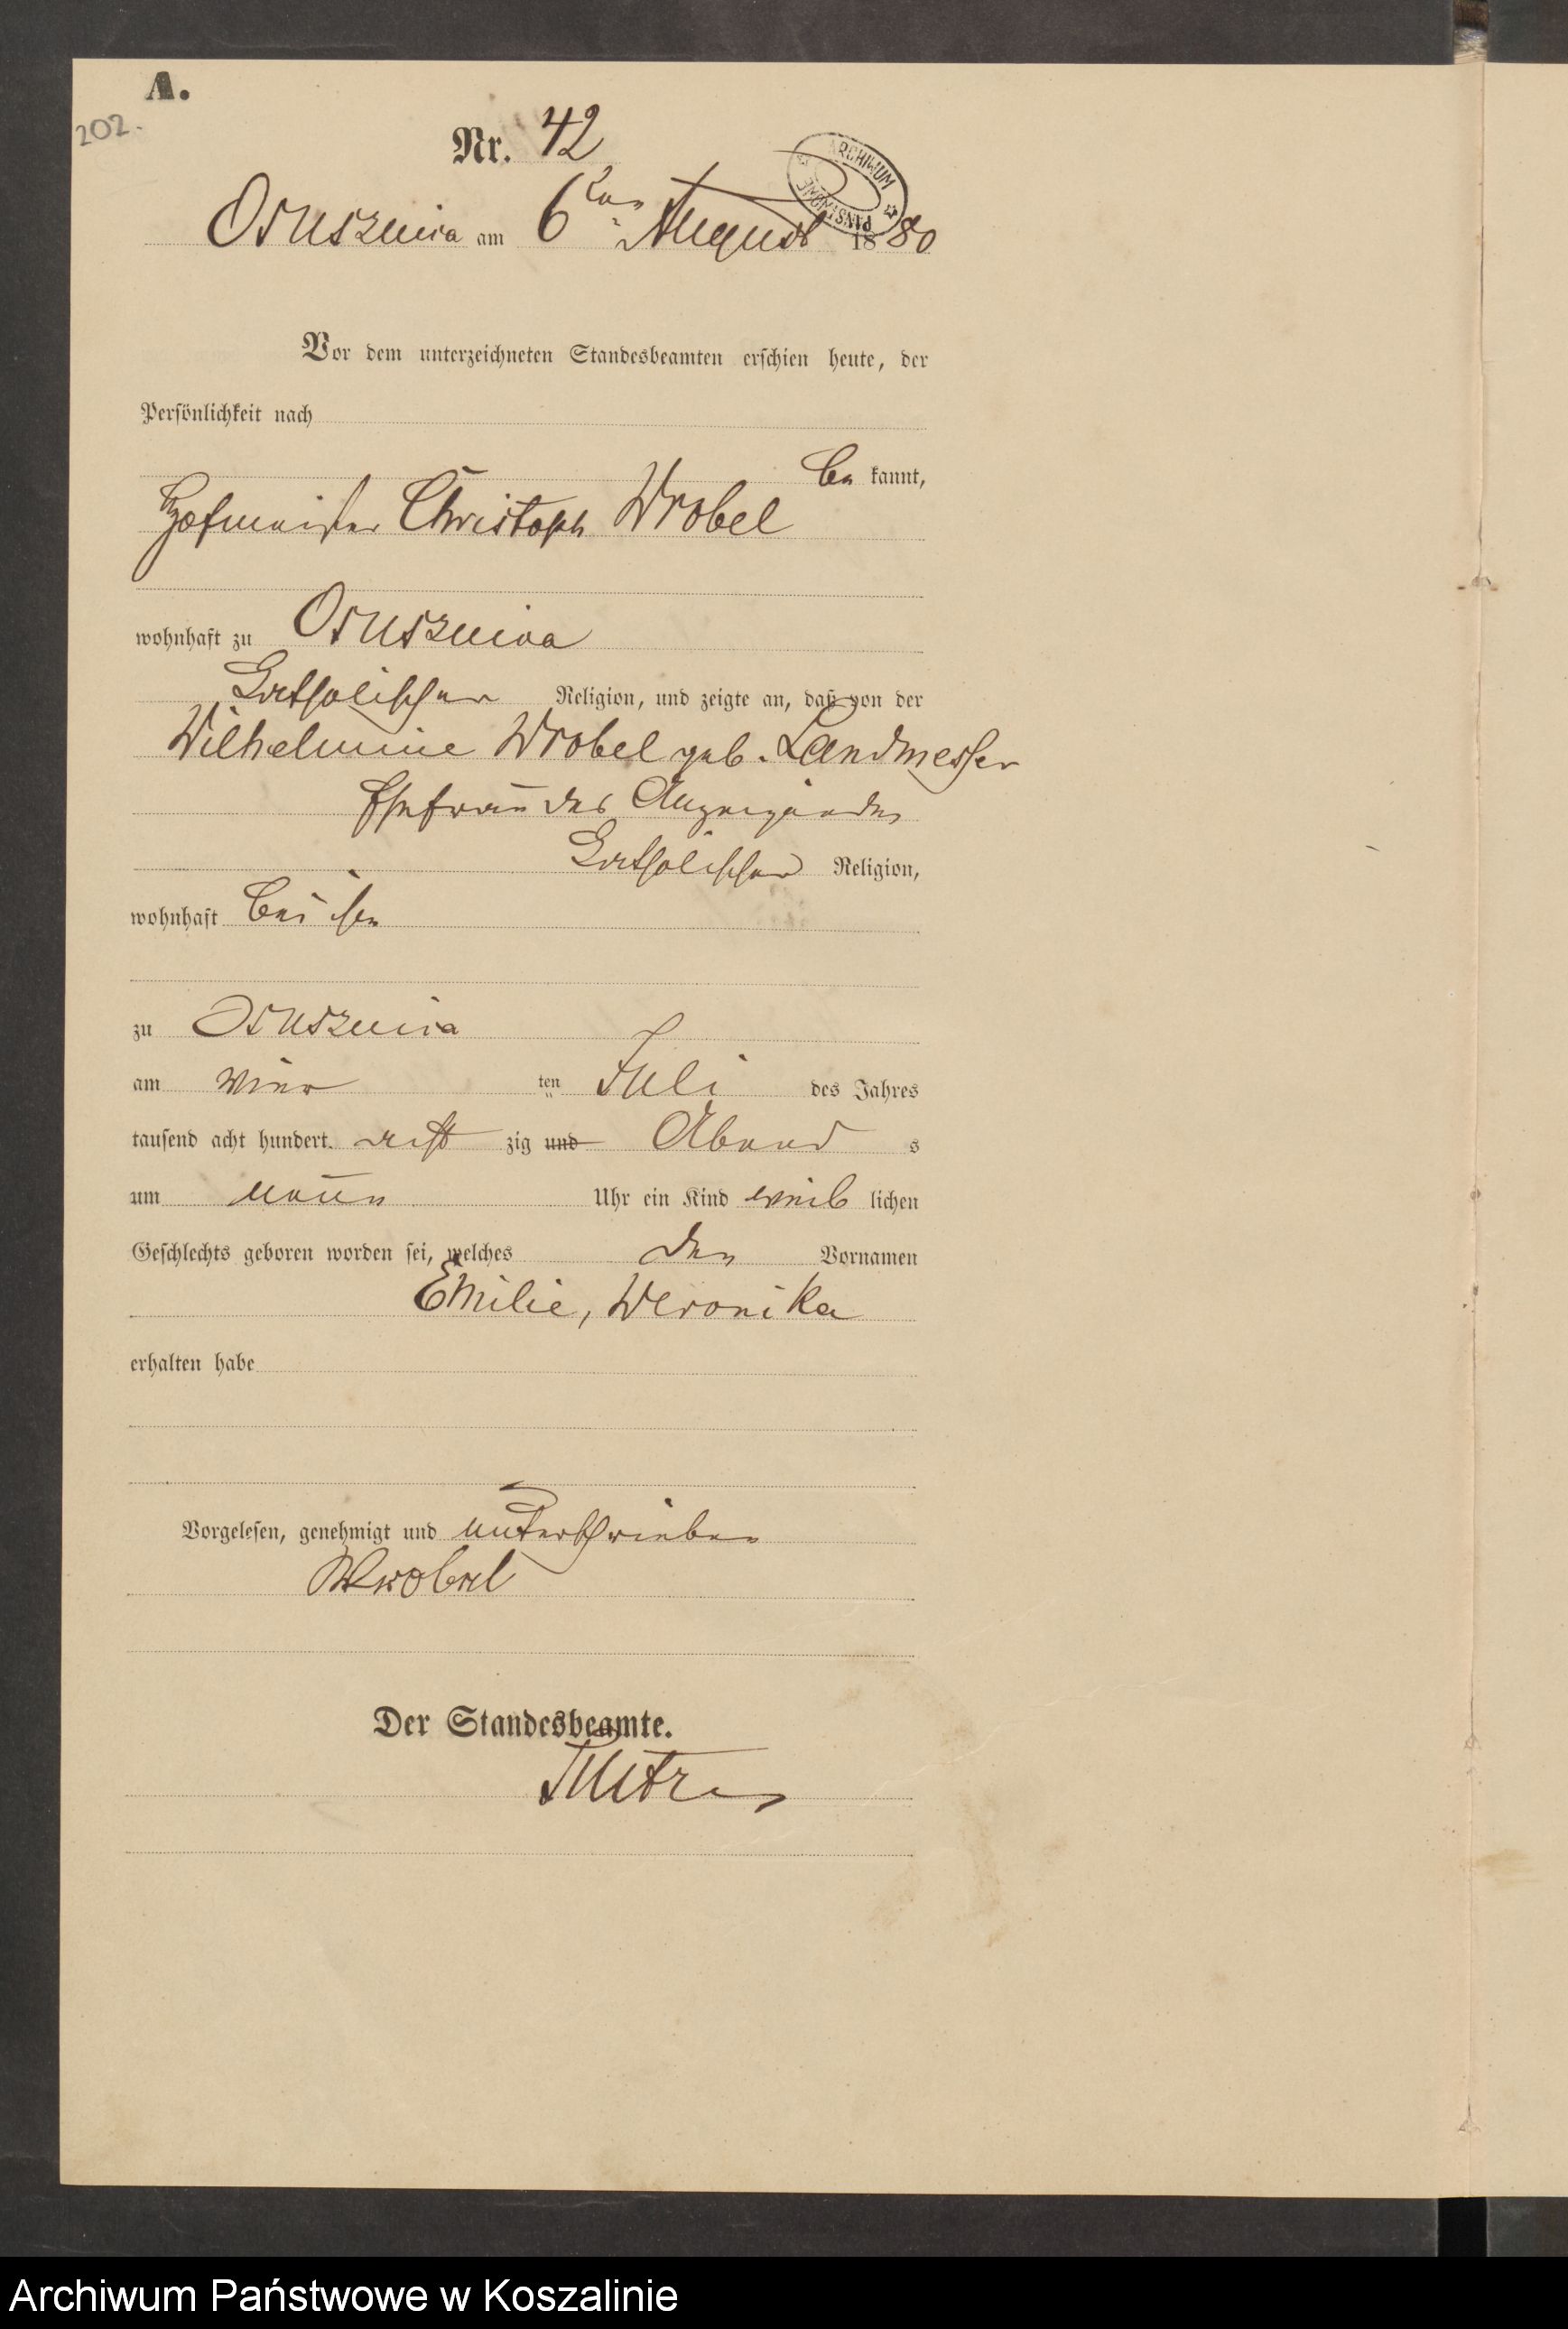 A.
202.
Nr. 42
ARCHIWUM PAŃSTWOWE
Osuszniza am 6ten August 1880
Vor dem unterzeichneten Standesbeamten erschien heute, der
Persönlichkeit nach
be kannt,
Hofmeister Christoph Wrobel
wohnhaft zu Osuszniza
katholischer Religion, und zeigte an, daß von der
Wilhelmine Wrobel geb. Landmesser
Ehefrau des Anzeigenden
katholischer Religion,
wohnhaft bei ihm
zu Osuszniza
am vier ten Juli des Jahres
tausend acht hundert acht zig und Abend s
um neun Uhr ein Kind weib lichen
Geschlechts geboren worden sei, welches den Vornamen
Emilie, Weronika
erhalten habe
Vorgelesen, genehmigt und unterschrieben
Wrobel
Der Standesbeamte.
Archiwum Państwowe w Koszalinie